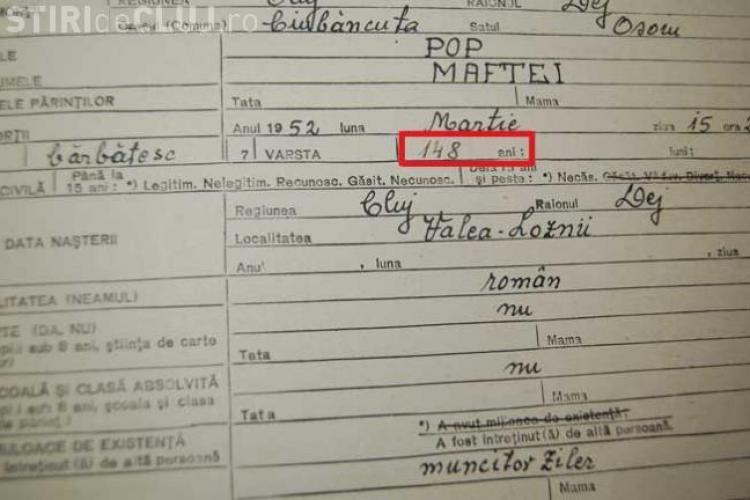 ŞTIRIdeCLUJ.ro
REGIUNEA Cluj RAIONUL Dej
(Comuna) Ciubăncuța Satul Osoiu
POP
MAFTEI
ELE PĂRINȚILOR Tata Mama
Anul 1952 luna Martie ziua 15 ora
bărbătesc 7 VARSTA 148 ani; luni;
CIVILĂ Până la 15 ani: *) Legitim. Nelegitim. Recunosc. Găsit. Necunosc. și peste: *) Necăs.
Regiunea Cluj Raionul Dej
DATA NAȘTERII Localitatea Valea-Loznii
Anul , luna , ziua
LITATEA (NEAMUL) român
TE (DA, NU) nu
sub 8 ani, știința de carte
Tata Mama
OALĂ ȘI CLASĂ ABSOLVITĂ nu
sub 8 ani, școala și clasa
de părinți) Tata Mama
*) A avut mijloace de existență;
LOACE DE EXISTENȚĂ A fost întreținut(ă) de altă persoană.
întreținut(ă) de altă persoană muncitor Ziler
Mama